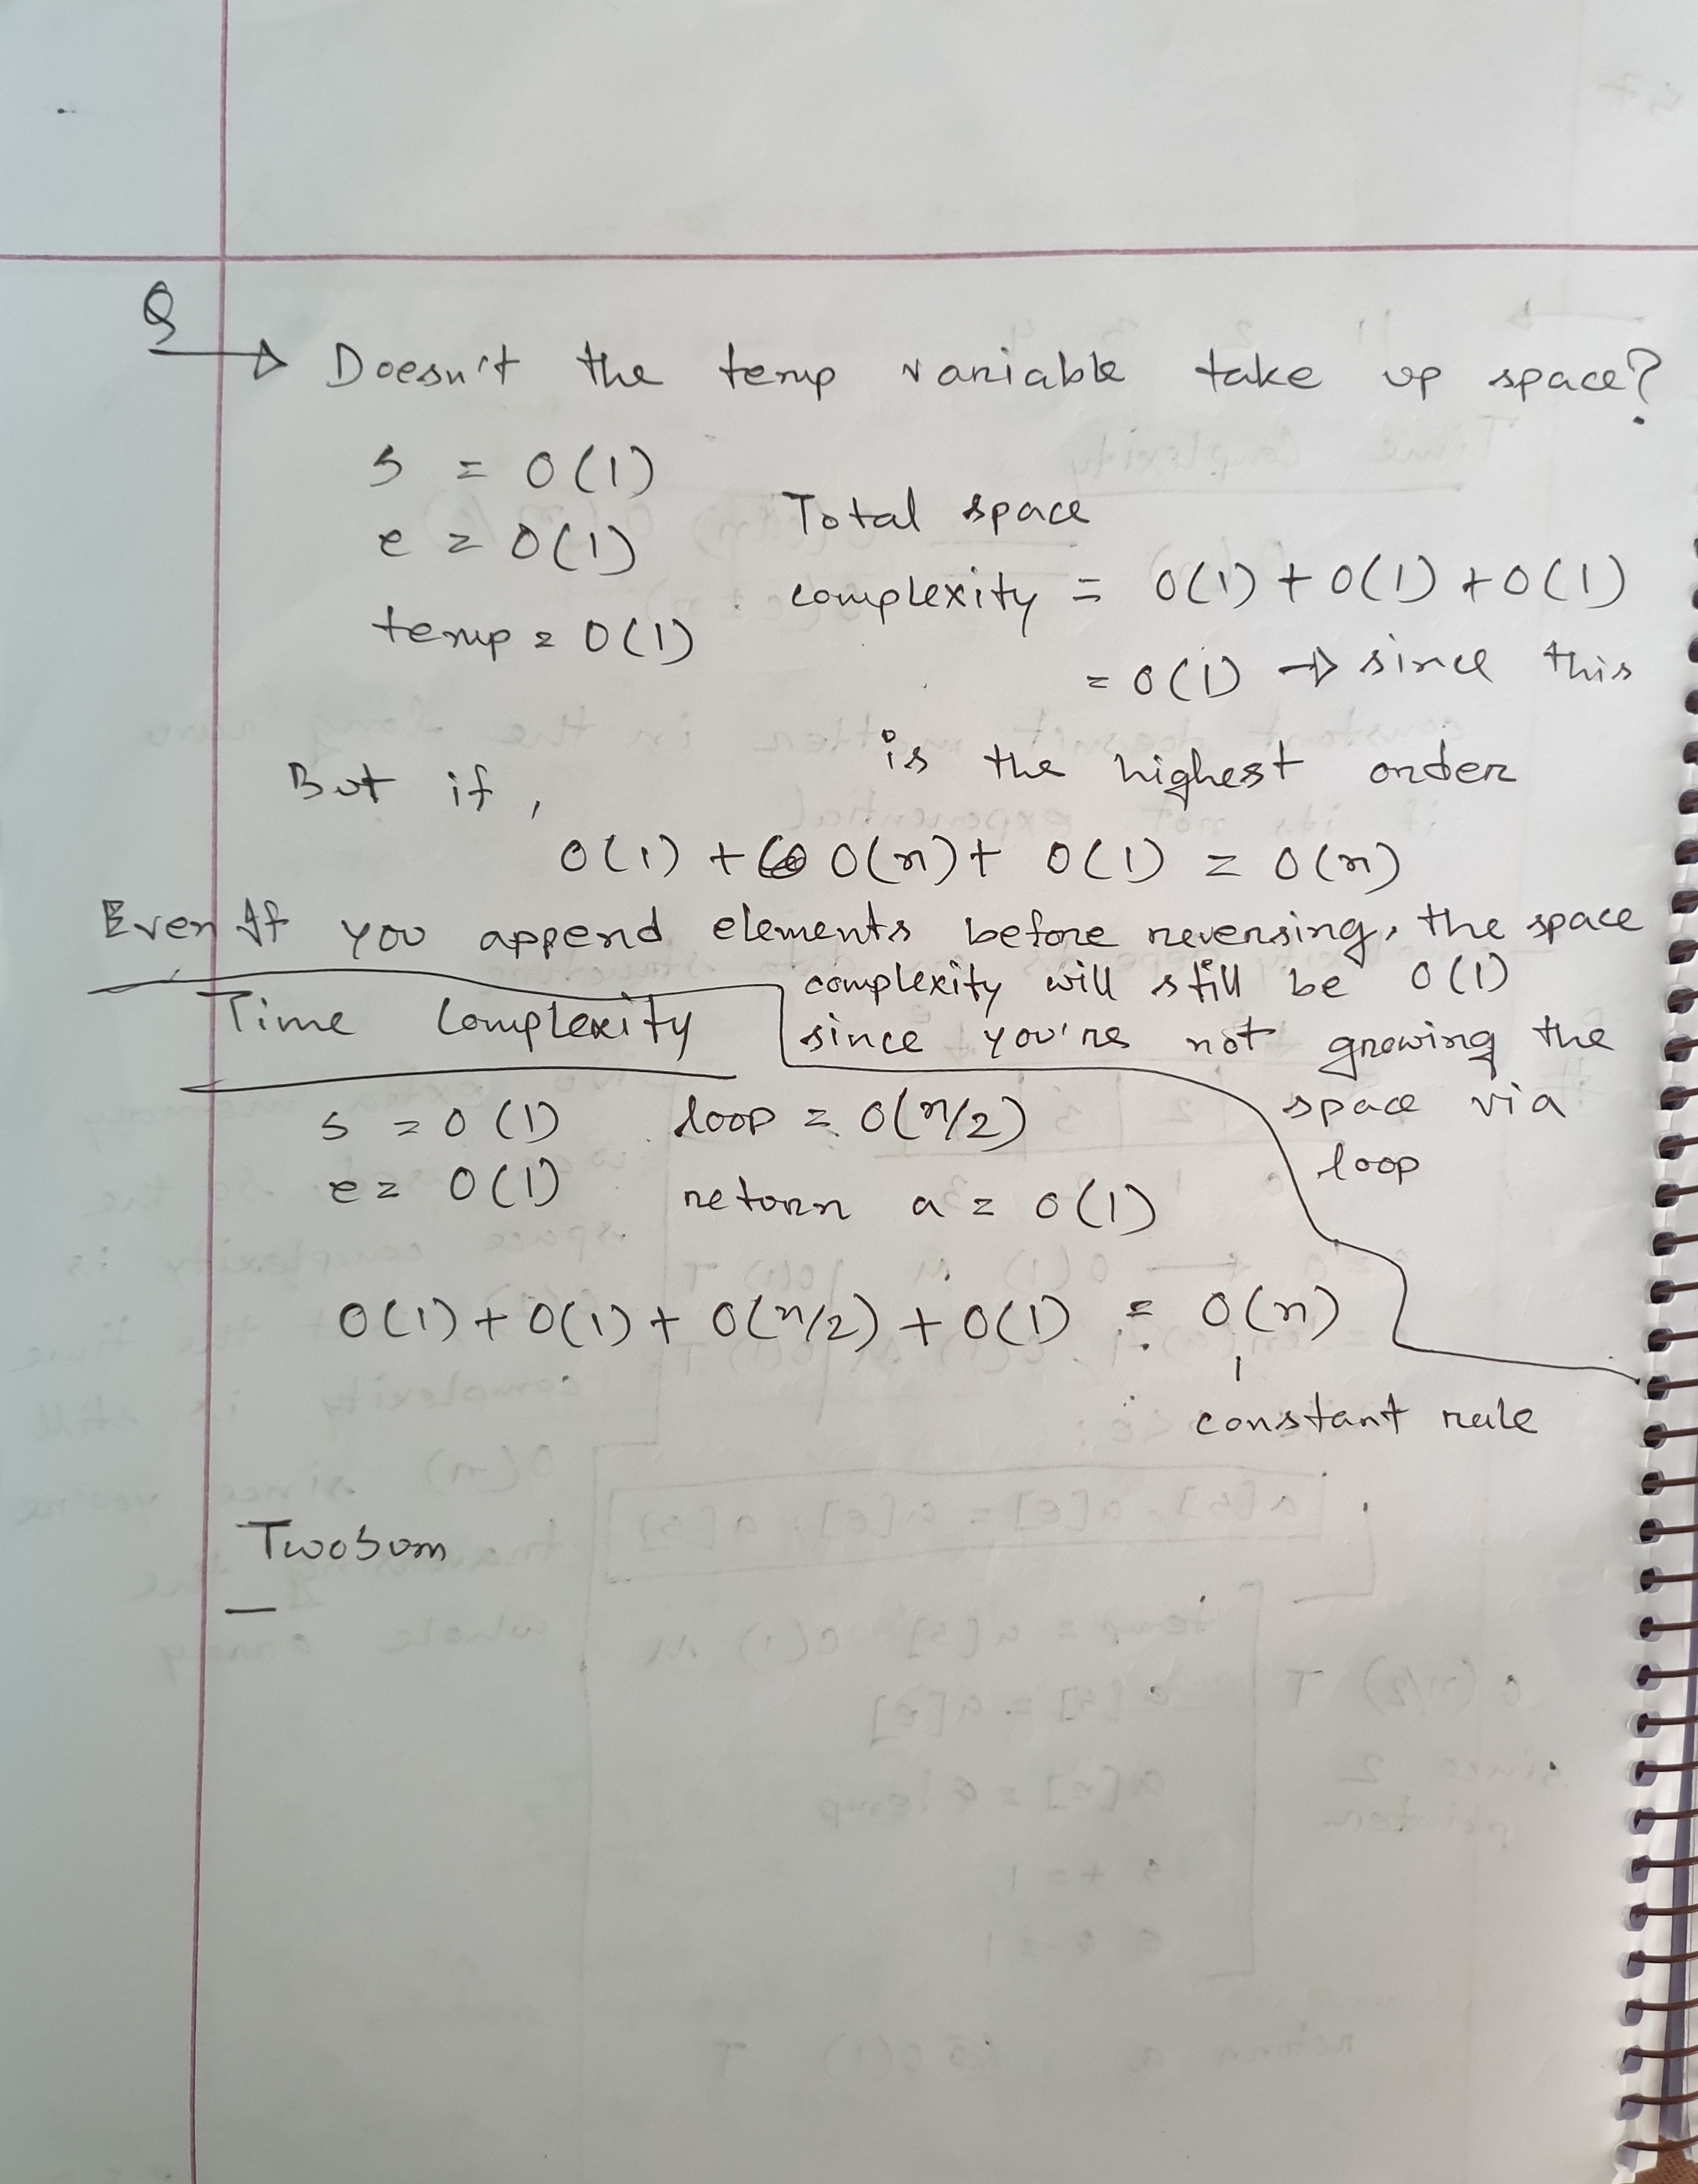 Q
→ Doesn't the temp variable take up space?
s = O(1)
e = O(1)
temp = O(1)
Total space
complexity = O(1) + O(1) + O(1)
= O(1) → since this
is the highest order
But if,
O(1) + O(n) + O(1) = O(n)
Even If you append elements before reversing, the space
complexity will still be O(1)
since you're not growing the
space via
loop
Time Complexity
s = O(1) loop = O(n/2)
e = O(1) return a = O(1)
O(1) + O(1) + O(n/2) + O(1) = O(n)
constant rule
TwoSum